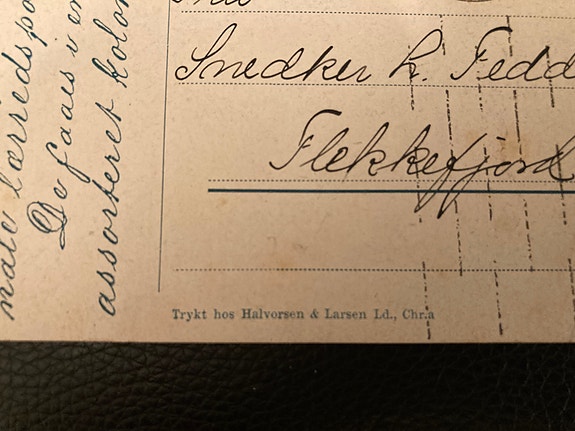 male lærredspo
De faaes i en
assorteret kolon
Snedker L. Fedd
Flekkefjord
Trykt hos Halvorsen & Larsen Ld., Chr.a